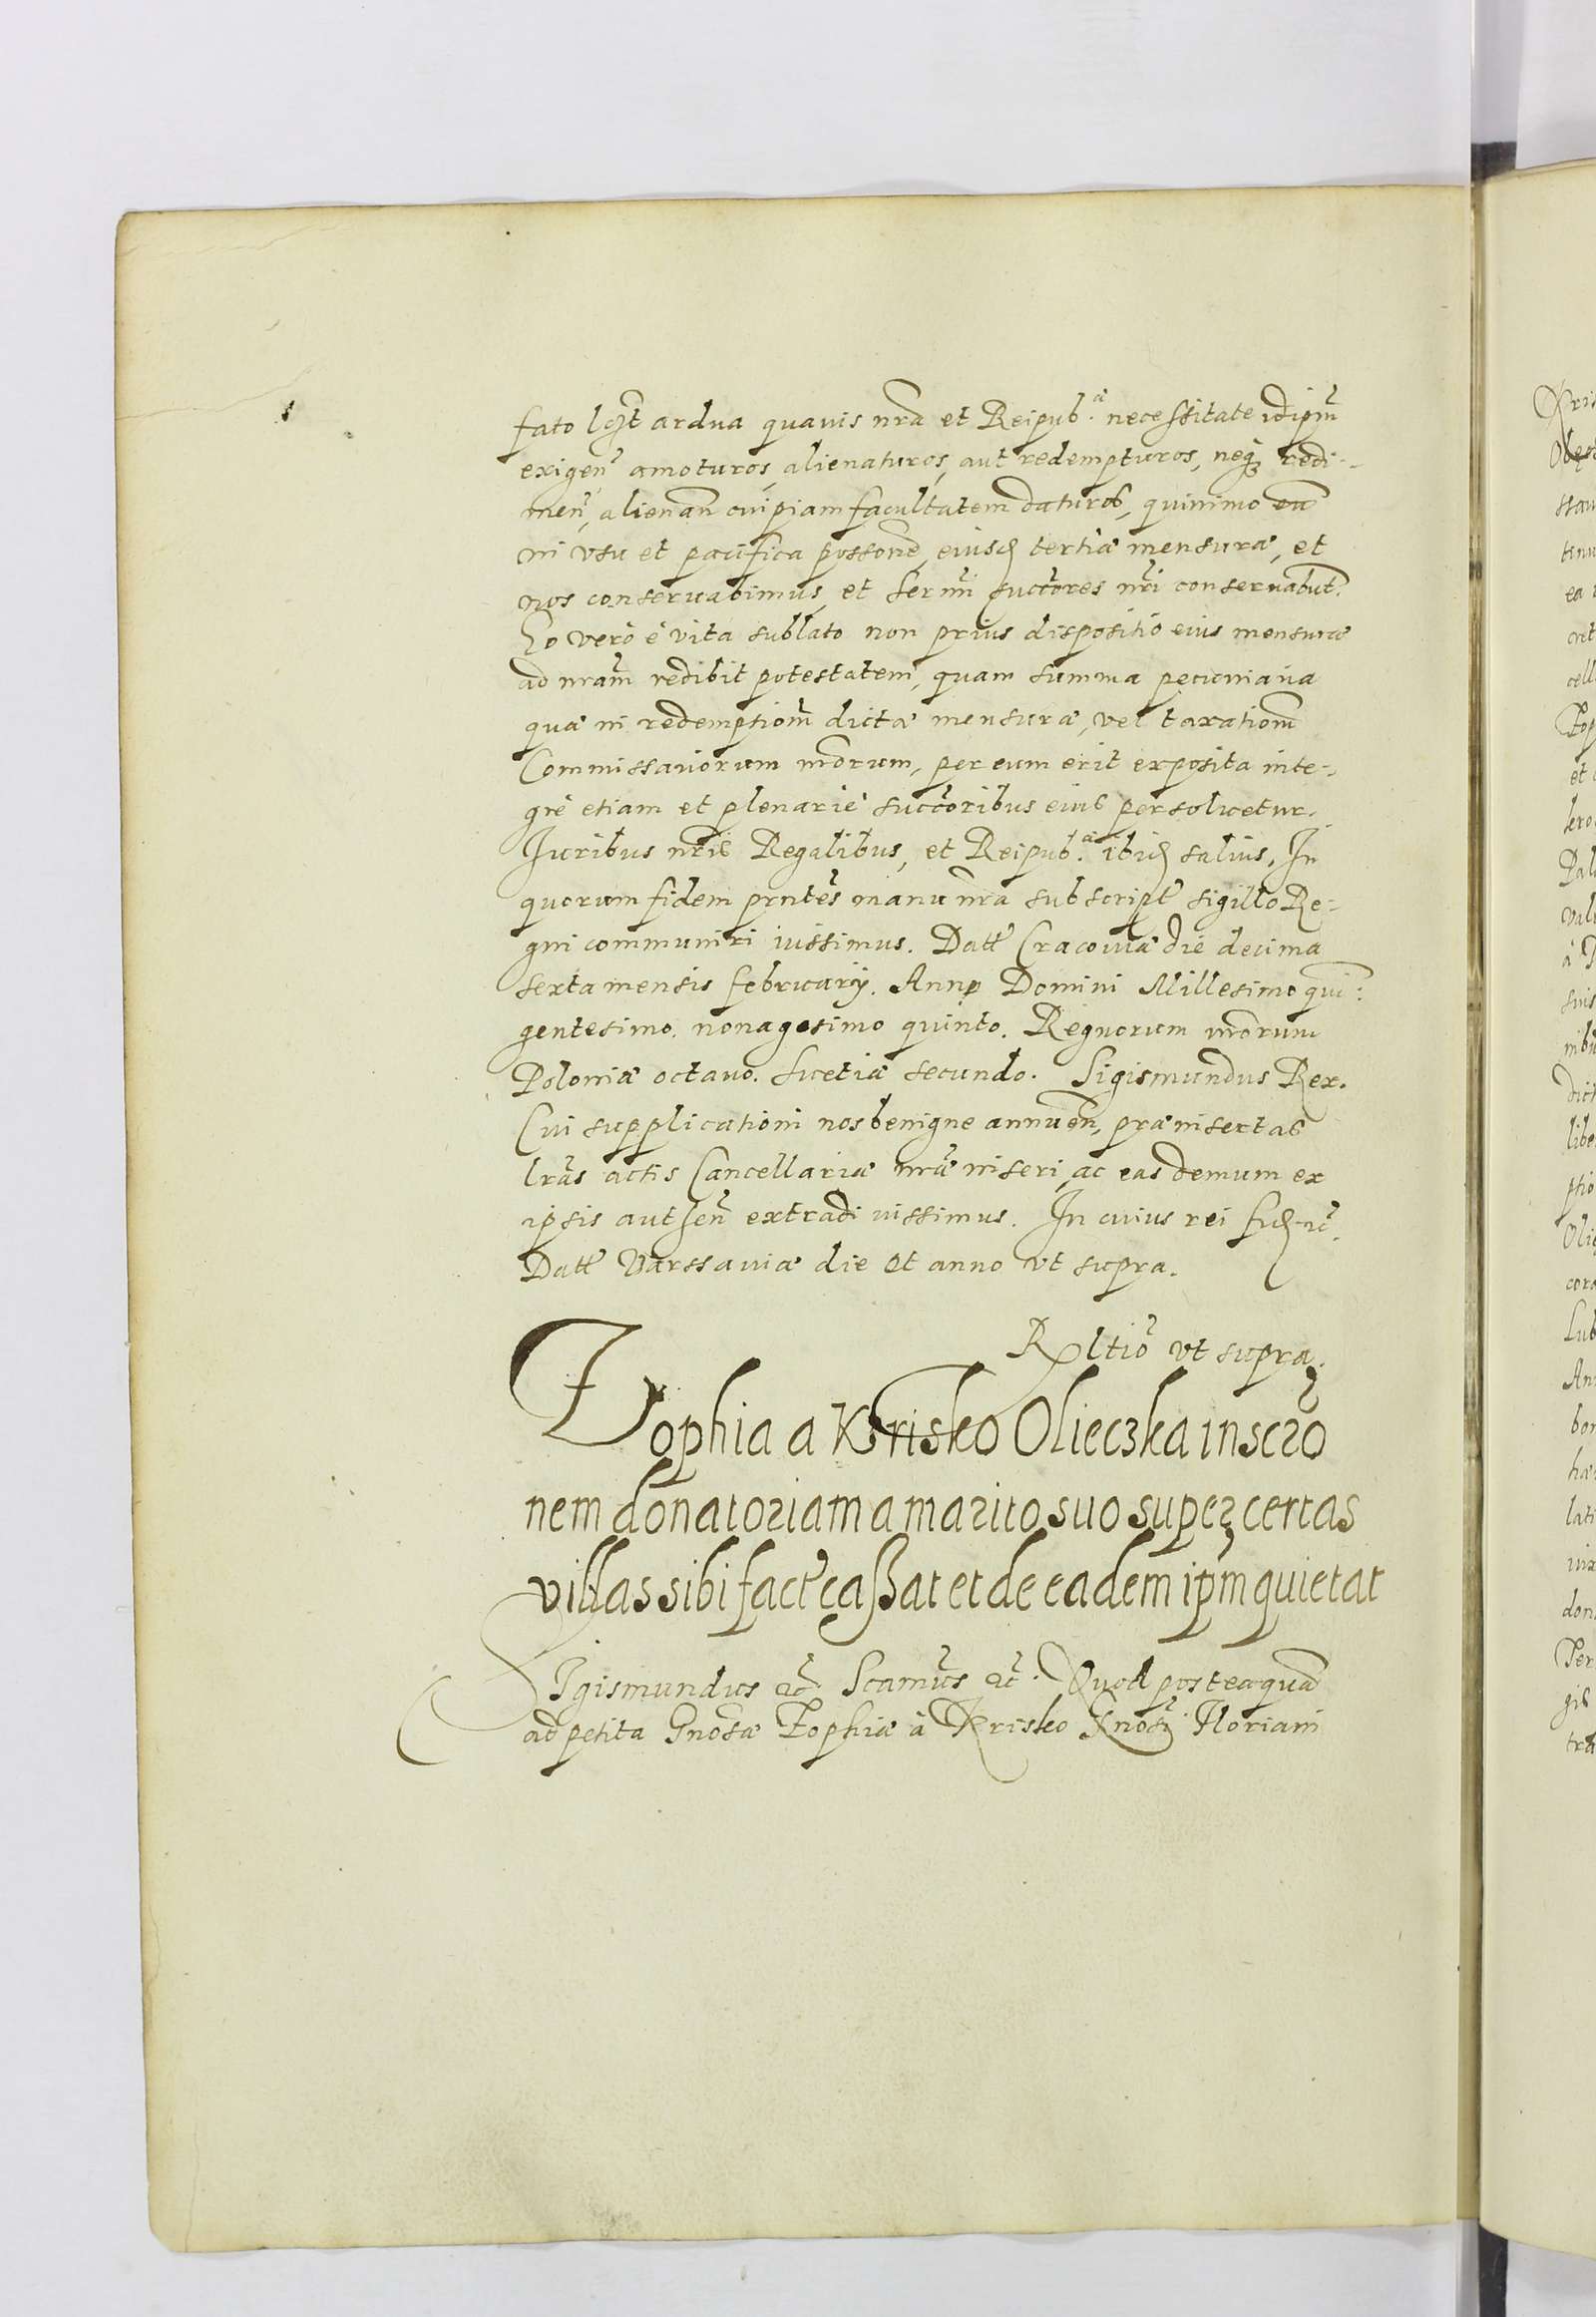 fato l𝑔t ardua quauis nrã et Reipub.ᵃ necessitate idipm̃
exigeñ amoturos, alienaturos, aut redempturos, neq̃ redi-
meñ, alienañ cuipiam facultatem daturos, quinimo eũ
in vsu et pacifica possonẽ, eiusd tertiæ mensuræ, et
nos conseruabimus, et sermi succ̃ores nr̃i conseruabunt̃.
Eo vero è vita sublato non prius dispositio eius mensuræ
ad nram̃ redibit potestatem, quam summa pecuniaria
quæ in redemptionẽ dictæ mensuræ, vel taxationẽ
Commissariorum nrõrum, per eum erit exposita inte-
grè etiam et plenariè succ̃oribus eius persoluetur.
Iuribus nr̃is Regalibus, et Reipub.ᵃ ibid saluis. In
quorum fidem prñtes manu nrã subscript̃ sigillo Re-
gni communiri iussimus. Datt̃ Cracouiæ die decima
sexta mensis februarij. Anno Domini Millesimo quĩ:
gentesimo nonagesimo quinto. Regnorum nrõrum
Poloniæ octauo. Suetiæ secundo. Sigismundus Rex.
Cui supplicationi nos benigne annueñ, præinsertas
lrãs actis Cancellariæ nrã̃æ inseri, ac eas demum ex
ipsis autheñ extradi iussimus. In cuius rei fid ꝛc̃.
Datt̃ Varssauiæ die et anno vt supra.
Rltiõ vt supra.
Zophia a Krisko Olieczka inscro
nem donatoriam a marito suo super certas
villas sibi fact̃ cassat et de eadem ipm̃ quietat
Sigismundus ꝛc̃. Scam̃us ꝛc̃. Quod posteaquã
ad petita Gnosæ Zophiæ à Krisko Gnosi Floriani